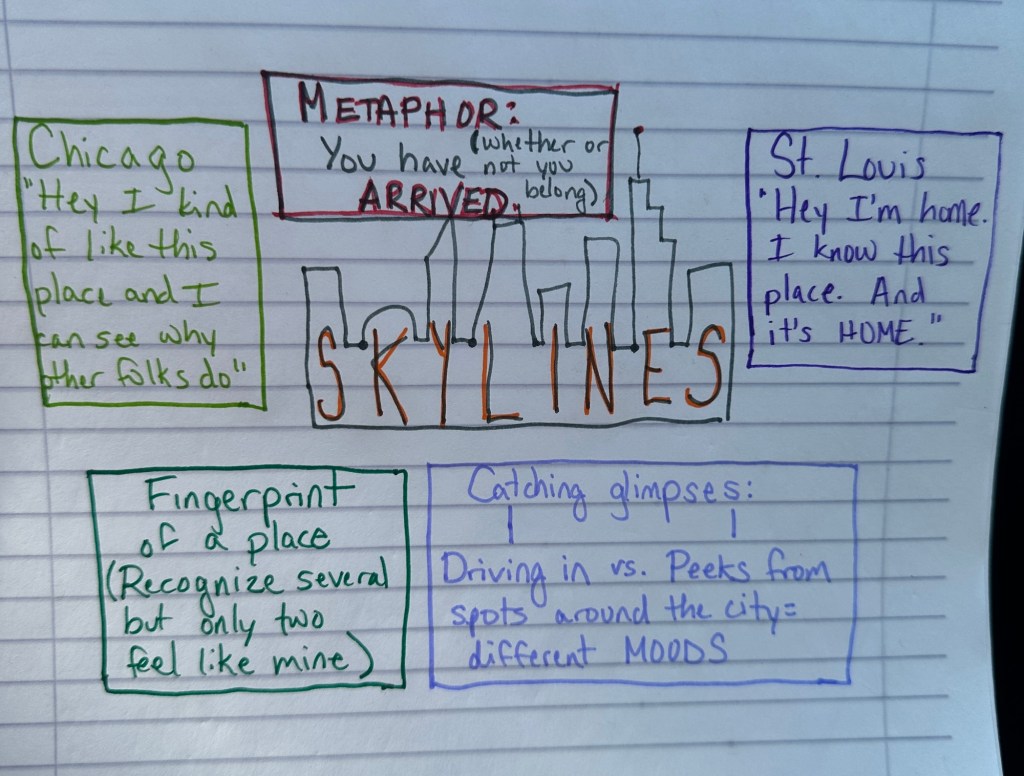 METAPHOR:
You have (whether or
not you
belong)
ARRIVED.
Chicago
"Hey I kind
of like this
place and I
can see why
other folks do"
St. Louis
"Hey I'm home.
I know this
place. And
it's HOME."
SKYLINES
Fingerprint
of a place
(Recognize several
but only two
feel like mine)
Catching glimpses:
Driving in vs. Peeks from
spots around the city=
different MOODS